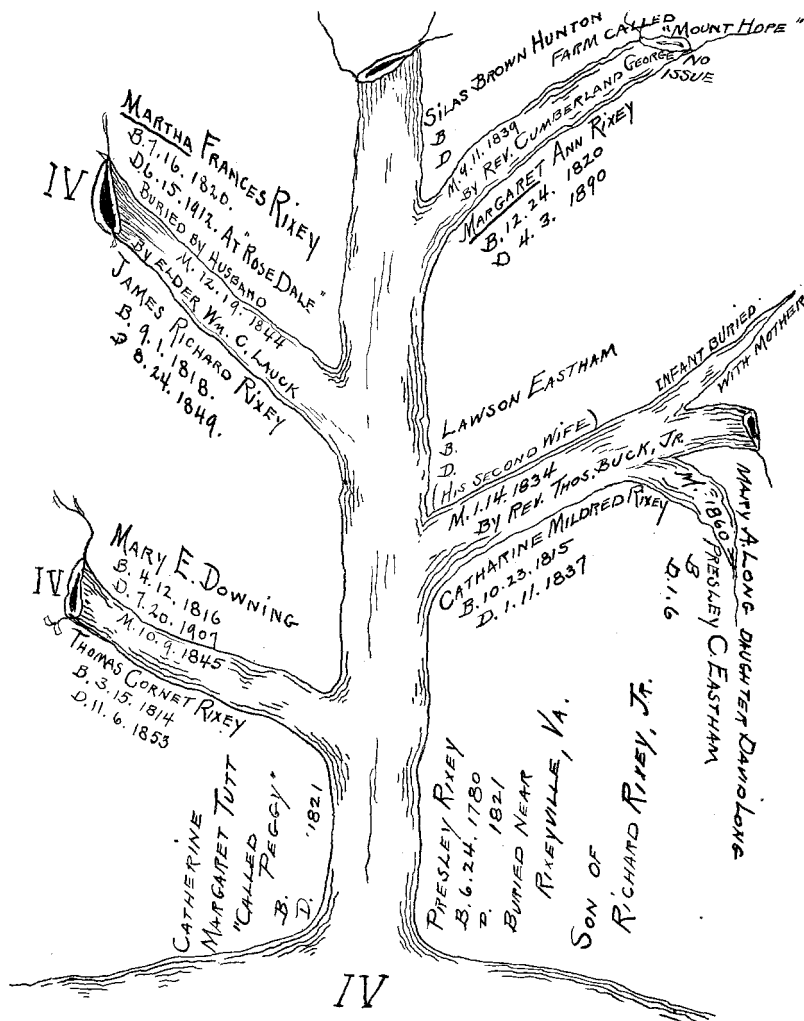 SILAS BROWN HUNTON
B
D
FARM CALLED "MOUNT HOPE"
M. 9. 11. 1839
BY REV. CUMBERLAND GEORGE
NO
ISSUE
MARGARET ANN RIXEY
B. 12. 24. 1820
D 4. 3. 1890
IV
MARTHA FRANCES RIXEY
B. 7. 16. 1820.
D 6. 15. 1912. AT "ROSE DALE"
BURIED BY HUSBAND
M. 12. 19. 1844
BY ELDER WM. C. LAUCK
JAMES RICHARD RIXEY
B. 9. 1. 1818.
D 8. 24. 1849.
LAWSON EASTHAM
B.
D.
(HIS SECOND WIFE)
M. 1. 14. 1834
BY REV. THOS. BUCK, JR.
CATHARINE MILDRED RIXEY
B. 10. 23. 1815
D. 1. 11. 1837
INFANT BURIED
WITH MOTHER
M. - 1860
PRESLEY C. EASTHAM
B
D. 1. 6
MARY A. LONG DAUGHTER DAVID LONG
IV
MARY E. DOWNING
B. 4. 12. 1816
D. 7. 20. 1907
M. 10. 9. 1845
THOMAS CORNET RIXEY
B. 3. 15. 1814
D. 11. 6. 1853
CATHERINE
MARGARET TUTT
"CALLED PEGGY"
B.
D. 1821
PRESLEY RIXEY
B. 6. 24. 1780
D. 1821
BURIED NEAR
RIXEYVILLE, VA.
SON OF
RICHARD RIXEY, JR.
IV